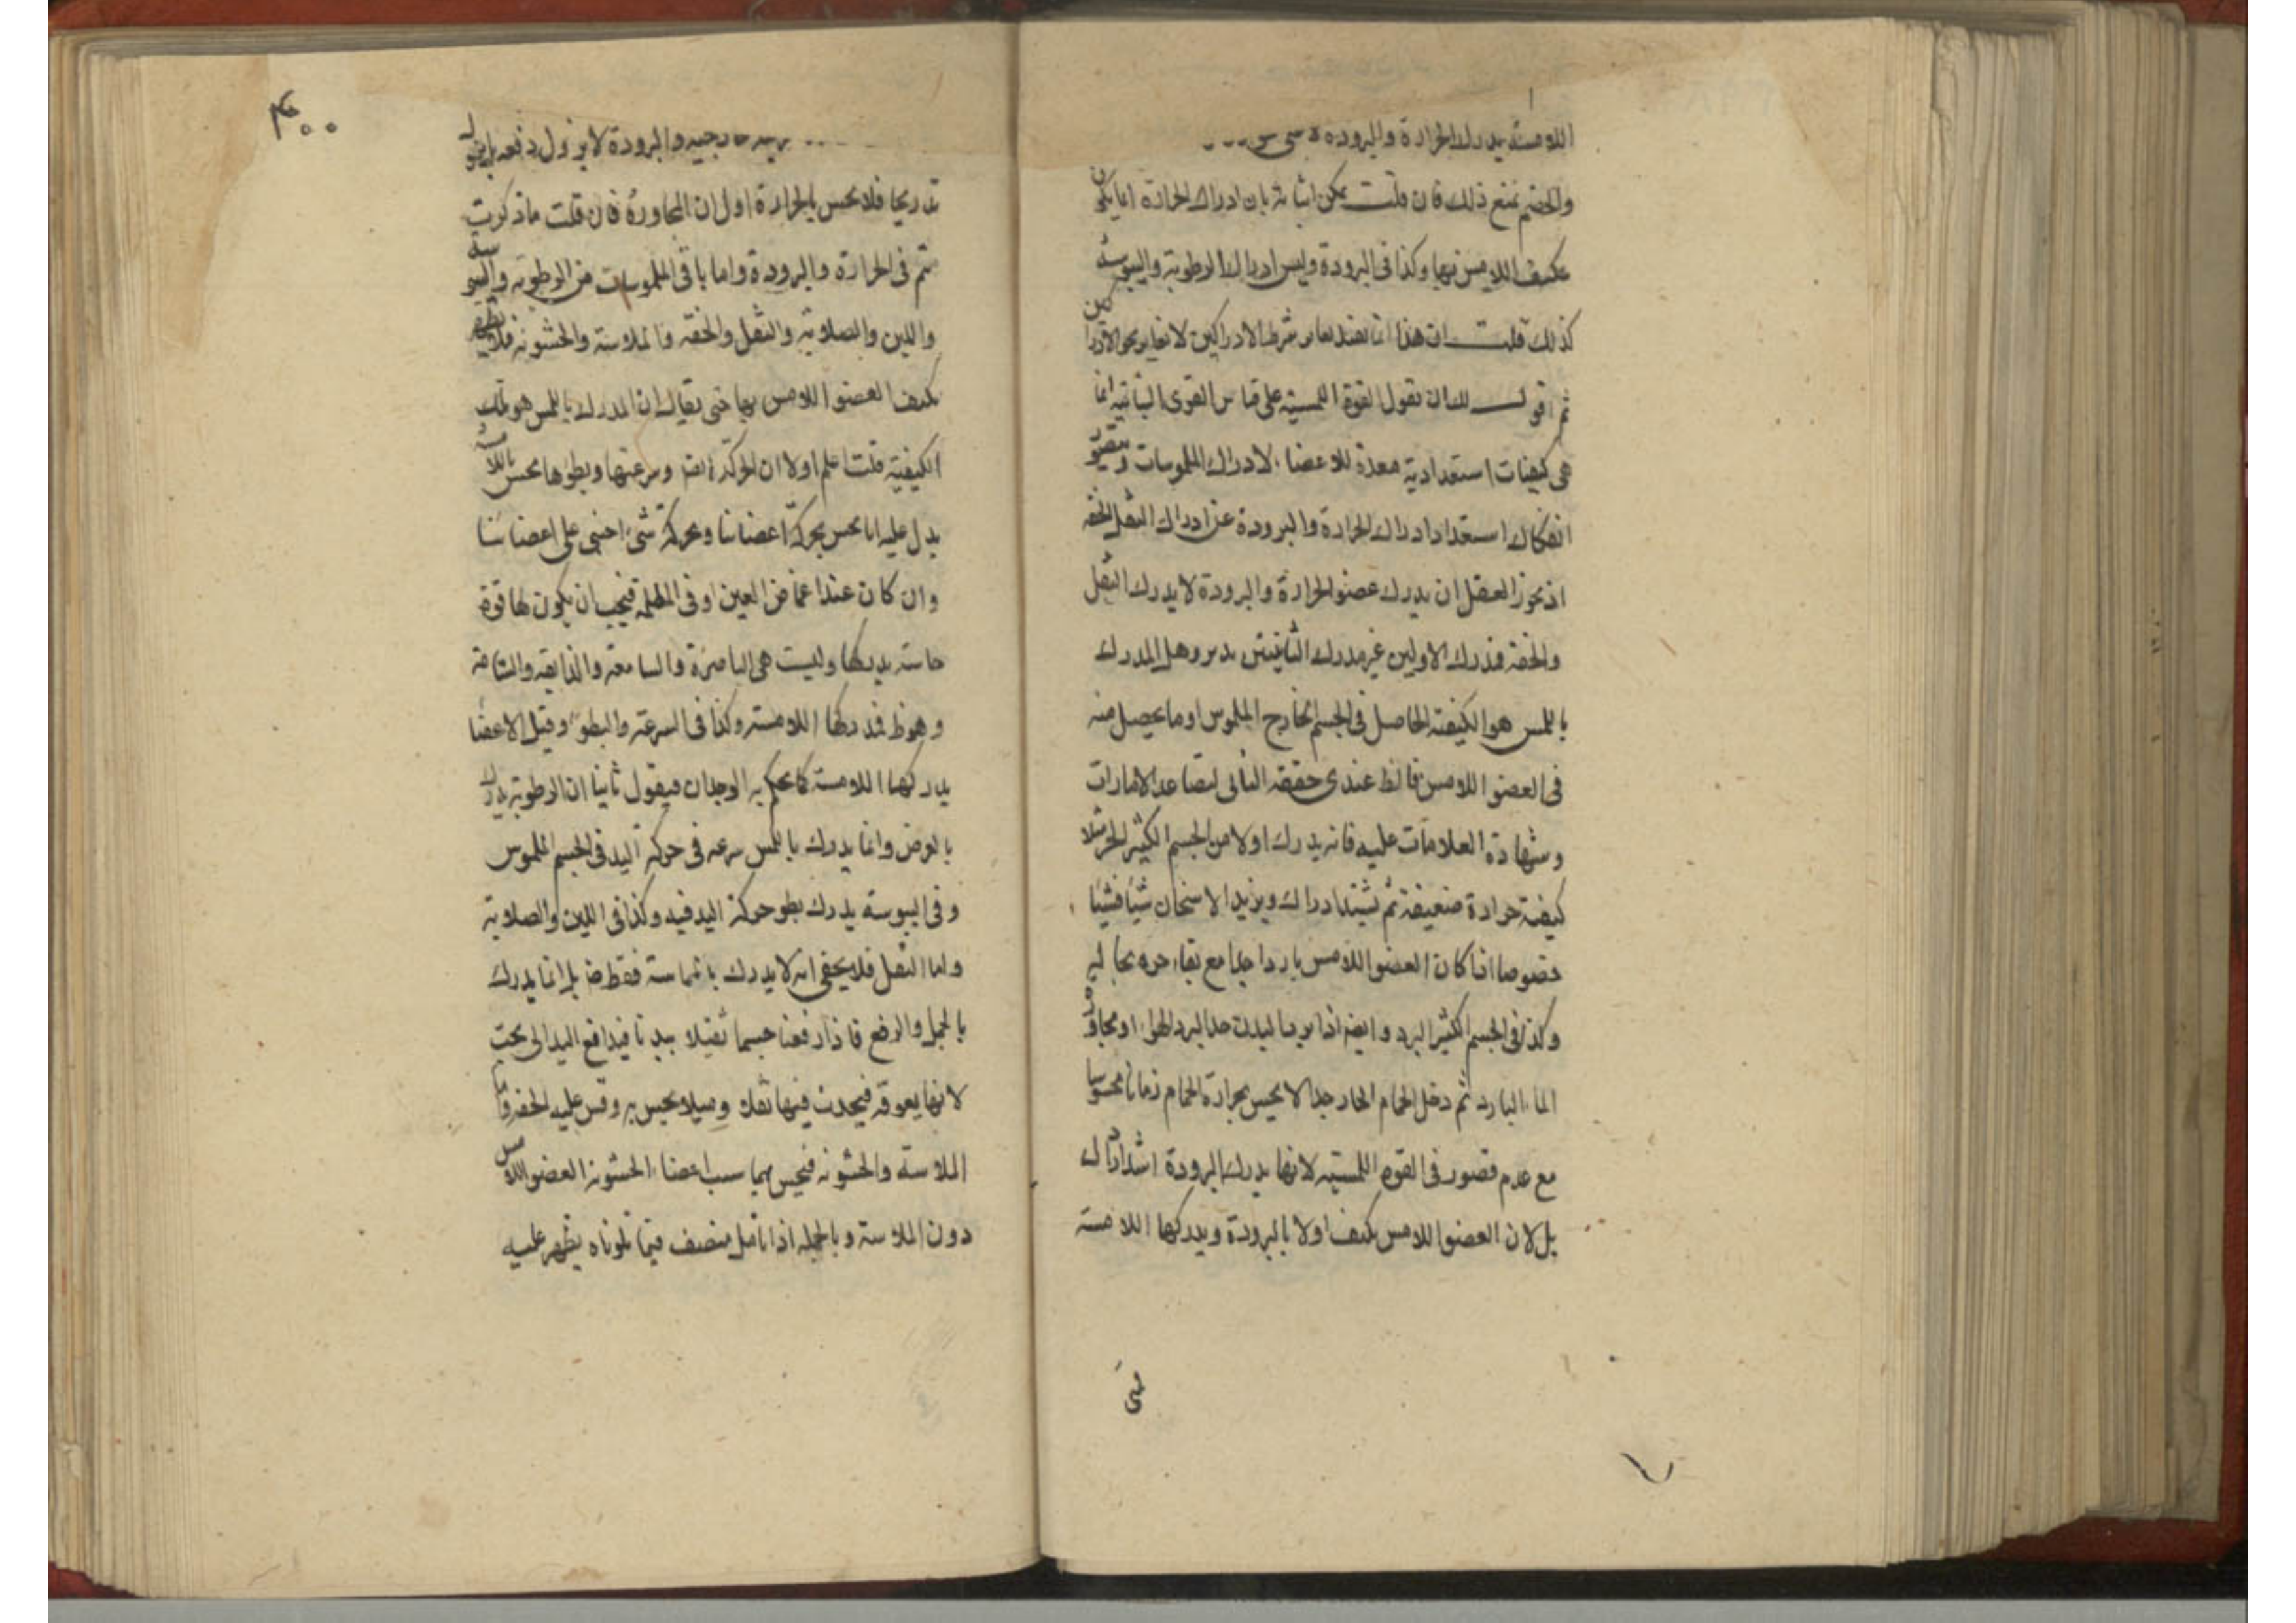 اللامسة يدرك الحرارة والبرودة لا
والخصم يمنع ذلك فان قلت يمكن اثباته بان ادراك الحرارة انما يكون
بكيف اللامس بها وكذا في البرودة وليس ادراك الرطوبة واليبوسة
كذلك قلت ان هذا انما يفيد تغاير شرط الادراكين لا تغاير
ثم اقول لك ان تقول القوة اللمسية على قياس القوى النباتية انما
هي كيفيات استعدادية معدة للاعضاء لادراك الملموسات ويتصور
انفكاك استعداد ادراك الحرارة والبرودة عن ادراك الثقل والخفة
اذ يجوز العقل ان يدرك عضو الحرارة والبرودة لا يدرك الثقل
والخفة فمدرك الاولين غير مدرك الثانيتين تدبر وهل المدرك
باللمس هو الكيفية الحاصل في الجسم الخارج الملموس او ما يحصل منه
في العضو اللامس فالظ عندي حقيقة الثاني لتصاعد الامارات
وشهادة العلامات عليه فانه يدرك اولا من الجسم الكثير الحر مثلا
كيفية حرارة ضعيفة ثم يشتد ادراك ويزيد الاسخان شيئا فشيئا
خصوصا اذا كان العضو اللامس باردا جدا مع بقاء حره بحاله
وكذا في الجسم الكثير البرد وايضا اذا برد البدن جدا لبرد الهواء او مجاورة
الماء البارد ثم دخل الحمام الحار جدا لا يحس بحرارة الحمام زمانا محسوسا
مع عدم قصور في القوة اللمسية لانها يدرك البرودة اشد ادراك
بل لان العضو اللامس كيف اولا بالبرودة ويدركها اللامسة
٤٠٠
والبرودة لا يزول دفعة بل يزول
تدريجا فلا يحس بالحرارة اول ان المجاورة فان قلت ما ذكرت
يتم في الحرارة والبرودة واما باقي الملموسات من الرطوبة واليبوسة
واللين والصلابة والثقل والخفة والملاسة والخشونة فلا يظهر
تكيف العضو اللامس بها حتى يقال ان المدرك باللمس هو تلك
الكيفية قلت اعلم اولا ان الحركة ايضا وسرعتها وبطؤها يحس باللامسة
يدل عليه انا نحس بحركة اعضائنا وبحركة شيء اجنبي على اعضائنا
وان كان عند اغماض العين او في الظلمة فيجب ان يكون لها قوة
حاسة يدركها وليست هي الباصرة والسامعة والذايقة والشامة
وهو ظ فتدركها اللامسة وكذا في السرعة والبطوء وقيل الاعضا
يدركها اللامسة كما يحكم به الوجدان فيقول ثانيا ان الرطوبة يدرك
بالعرض وانما يدرك باللمس سرعة في حركة اليد في الجسم الملموس
وفي اليبوسة يدرك بطو حركة اليد فيه وكذا في اللين والصلابة
واما الثقل فلا يخفى انه لا يدرك بالمماسة فقط بل انما يدرك
بالحمل والرفع فاذا رفعنا جسما ثقيلا بيدنا فيدافع اليد الى تحت
لانها يعوقه فيحدث فيها ثقلا وميلا يحس به وقس عليه الخفة واما
الملاسة والخشونة فيحس بهما سبب اعضا الخشونة العضو اللامس
دون الملاسة وبالجملة اذا تامل منصف فيما تلوناه يظهر عليه